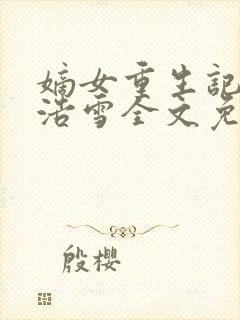 嫡女重生記
浩雪全文免
殷櫻